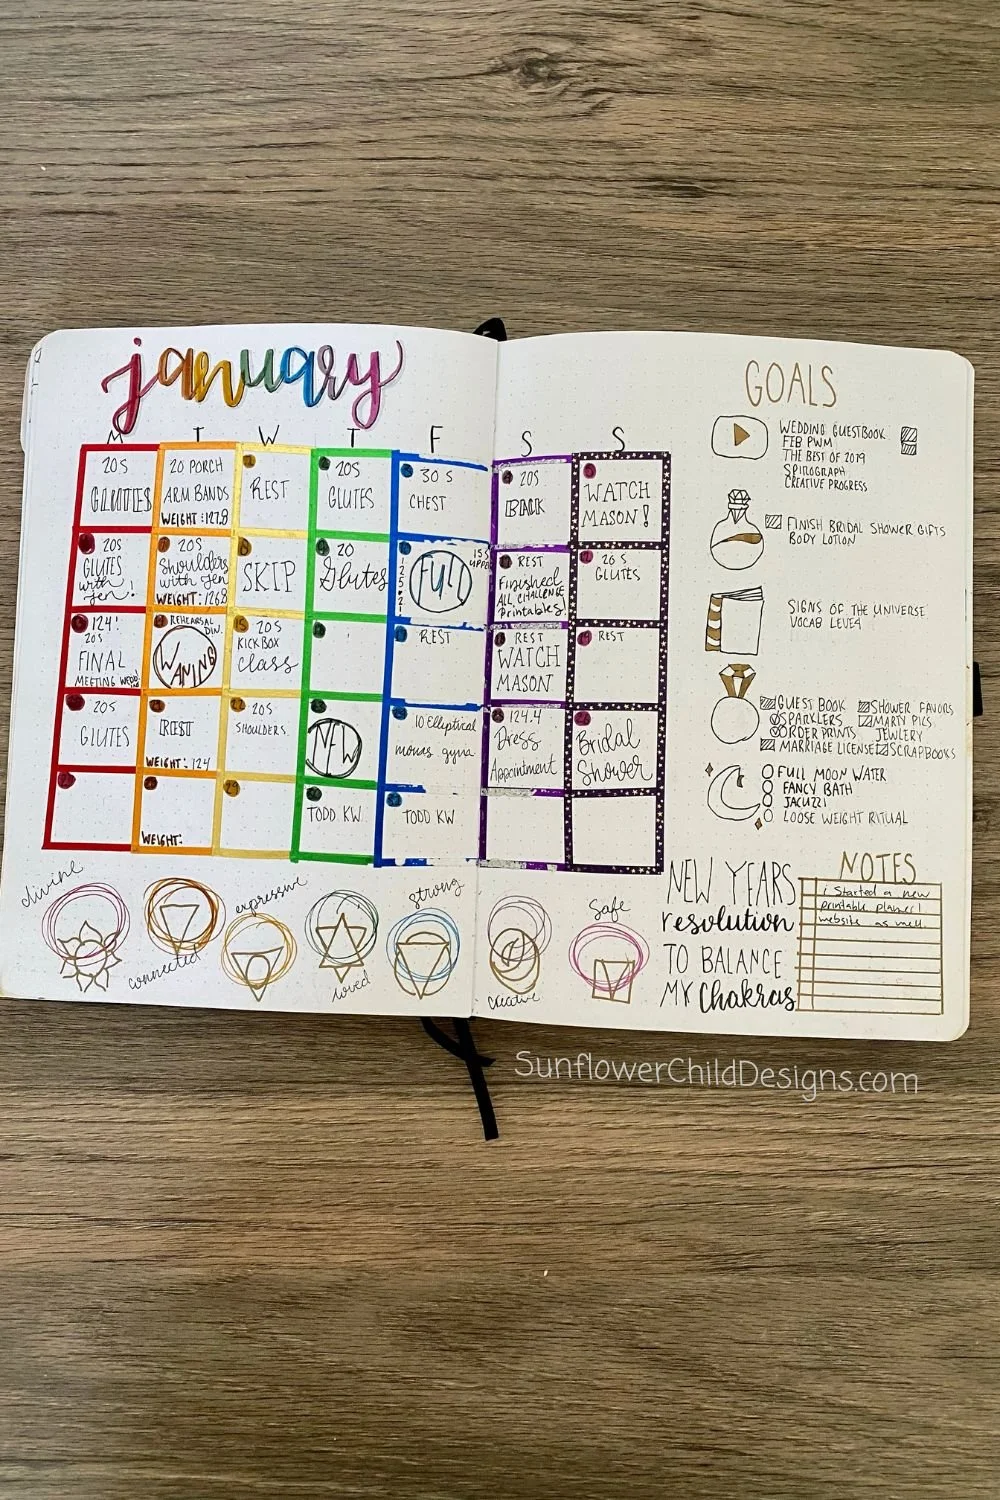 january
M T W T F S S
20 S
GLUTES
20 PORCH
ARM BANDS
WEIGHT: 127.8
1
REST
2 20S
GLUTES
3 30 S
CHEST
4 20S
5
WATCH
MASON!
6 20S
GLUTES
with
Jen!
7 20S
Shoulders
with Jen
WEIGHT: 126.8
8
SKIP
9 20
Glutes
10
125.2
FULL
15 S
11 REST
Finished
ALL CHALLENGE
Printables.
12 20 S
GLUTES
13 124!
20S
FINAL
MEETING WEDD.
14 REHEARSAL
DIN.
WANING
15 20S
KICKBOX
class
17 REST
18 REST
WATCH
MASON
19 REST
20 20S
GLUTES
21
REST
WEIGHT: 124
22 20S
SHOULDERS.
23
NEW
24 10 Elliptical
25 124.4
Dress
Appointment
26
Bridal
Shower
WEIGHT:
29
30
TODD KW
31
TODD KW
divine
connected
expressive
loved
strong
creative
Safe
GOALS
WEDDING GUESTBOOK
FEB PWM
THE BEST OF 2019
SPIROGRAPH
CREATIVE PROGRESS
FINISH BRIDAL SHOWER GIFTS
BODY LOTION
SIGNS OF THE UNIVERSE
VOCAB LEVE4
GUEST BOOK SHOWER FAVORS
SPARKLERS MARTY PICS
ORDER PRINTS JEWLERY
MARRIAGE LICENSE SCRAPBOOKS
FULL MOON WATER
FANCY BATH
JACUZZI
LOOSE WEIGHT RITUAL
NEW YEARS
resolution
TO BALANCE
MY Chakras
NOTES
i Started a new
printable planner!
website as well.
SunflowerChildDesigns.com